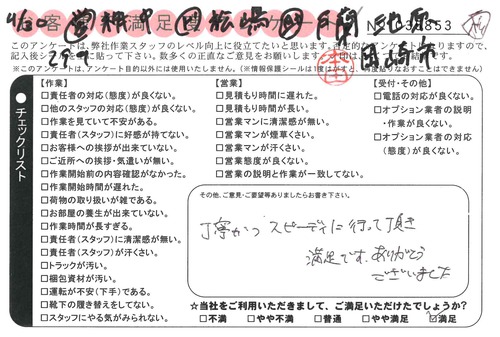 お客様満足度アンケート
このアンケートは、弊社作業スタッフのレベル向上に役立てたいと思います。
記入後シールをはって
数多くのご意見をお願いします
※このアンケートは、アンケート目的以外には使用いたしません。
チェックリスト
【作業】
□責任者の対応(態度)が良くない。
□他のスタッフの対応(態度)が良くない。
□作業を見ていて不安がある。
□責任者(スタッフ)に好感が持てない。
□お客様への挨拶が出来ていない。
□ご近所への挨拶・気遣いが無い。
□作業開始前の内容確認がなかった。
□作業開始時間が遅れた。
□荷物の取り扱いが雑である。
□お部屋の養生が出来ていない。
□作業時間が長すぎる。
□責任者(スタッフ)に清潔感が無い。
□責任者(スタッフ)が汗くさい。
□トラックが汚い。
□梱包資材が汚い。
□運転が不安(下手)である。
□靴下の履き替えをしてない。
□スタッフにやる気がみられない。
【営業】
□見積もり時間に遅れた。
□見積もり時間が長い。
□営業マンに清潔感が無い。
□営業マンが煙草くさい。
□営業マンが汗くさい。
□営業態度が良くない。
□営業の説明と作業が一致してない。
【受付・その他】
□電話の対応が良くない。
□オプション業者の説明・作業が良くない。
□オプション業者の対応(態度)が良くない。
その他、ご意見・ご要望等ありましたらお書き下さい。
丁寧かつスピーディに行って頂き
満足です。ありがとう
ございました
☆当社をご利用いただきまして、ご満足いただけたでしょうか?
□不満 □やや不満 □普通 □やや満足 ☑満足